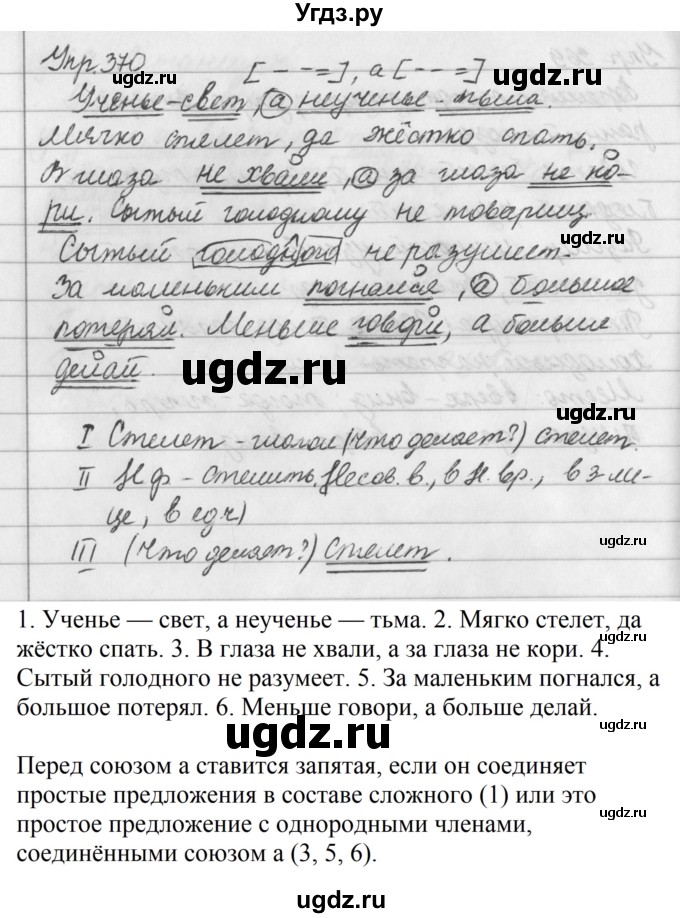 Угдз.ру
Упр. 370 [- - - =], а [- - - =]
Ученье - свет, а неученье - тьма.
Мягко стелет, да жёстко спать.
В глаза не хвали, а за глаза не ко-
ри. Сытый голодному не товарищ
Сытый голодного не разумеет.
За маленьким погнался, а большое
потерял. Меньше говори, а больше
делай.
ugdz.ru
ugdz.ru
I Стелет - глагол (Что делает?) стелет.
II Н.ф - стелить. Несов. в., в Н. вр., в 3 ли-
це, в ед.ч)
ugdz.ru
III (Что делает?) Стелет.
1. Ученье — свет, а неученье — тьма. 2. Мягко стелет, да
жёстко спать. 3. В глаза не хвали, а за глаза не кори. 4.
ugdz.ru
Сытый голодного не разумеет. 5. За маленьким погнался, а
большое потерял. 6. Меньше говори, а больше делай.
ugdz.ru
ugdz.ru
Перед союзом а ставится запятая, если он соединяет
простые предложения в составе сложного (1) или это
ugdz.ru
простое предложение с однородными членами,
соединёнными союзом а (3, 5, 6).
ugdz.ru